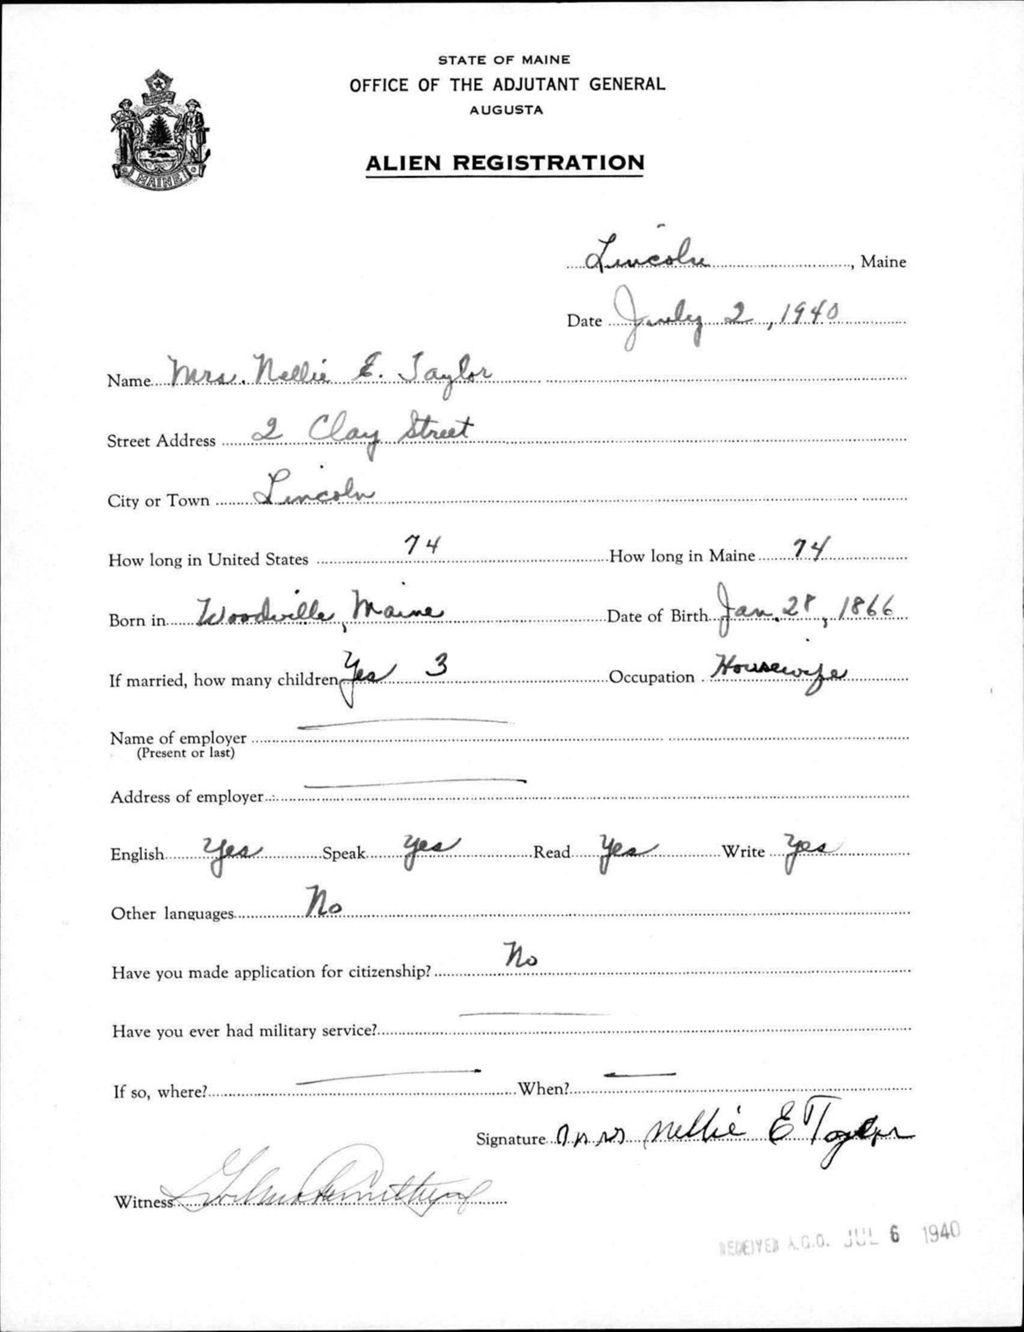 STATE OF MAINE
OFFICE OF THE ADJUTANT GENERAL
AUGUSTA
ALIEN REGISTRATION
MAINE
Lincoln, Maine
Date July 2, 1940
Name Mrs. Nellie E. Taylor
Street Address 2 Clay Street
City or Town Lincoln
How long in United States 74 How long in Maine 74
Born in Woodville, Maine Date of Birth Jan. 28, 1866
If married, how many children Yes 3 Occupation Housewife
Name of employer
(Present or last)
Address of employer
English Yes Speak Yes Read Yes Write Yes
Other languages No
Have you made application for citizenship? No
Have you ever had military service?
If so, where? When?
Signature Mrs Nellie E Taylor
Witness
RECEIVED A.G.O. JUL 6 1940